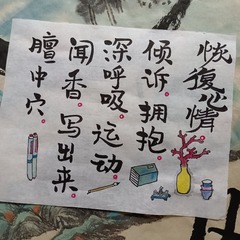 恢復心情
倾诉。拥抱。
深呼吸。运动。
闻香。写出来。
膻中穴。